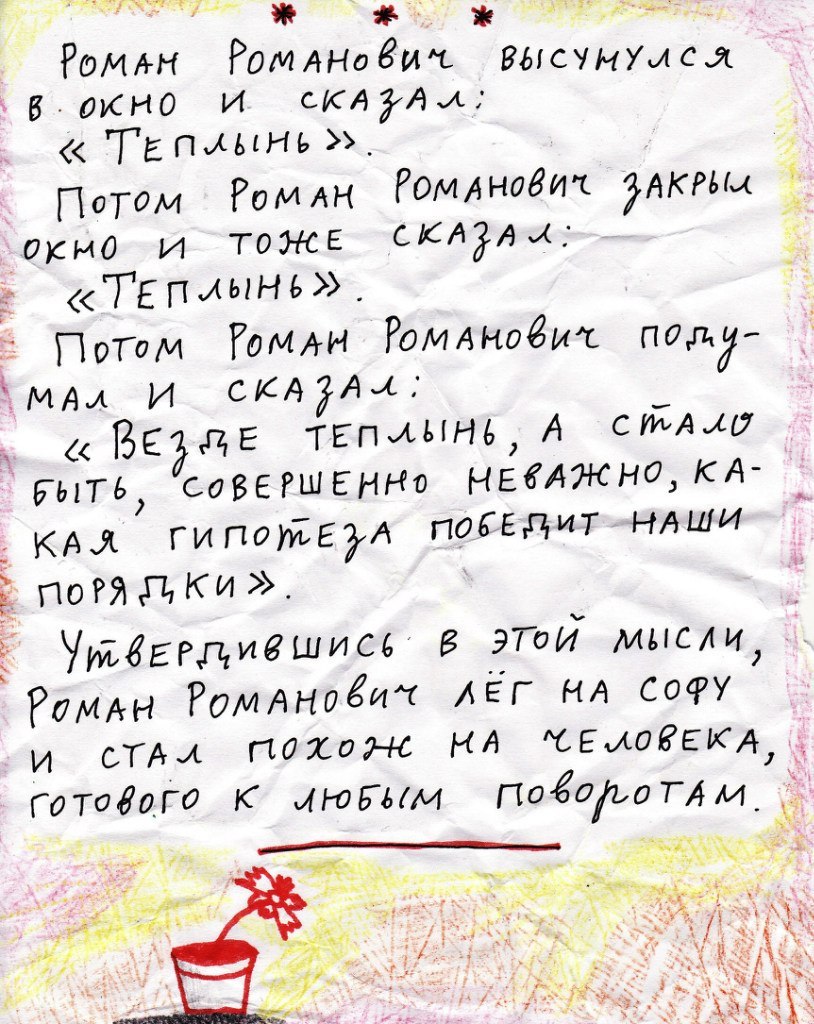 * * *
Роман Романович высунулся
в окно и сказал:
«Теплынь».
Потом Роман Романович закрыл
окно и тоже сказал:
«Теплынь».
Потом Роман Романович поду-
мал и сказал:
«Везде теплынь, а стало
быть, совершенно неважно, ка-
кая гипотеза победит наши
порядки».
Утвердившись в этой мысли,
Роман Романович лёг на софу
и стал похож на человека,
готового к любым поворотам.